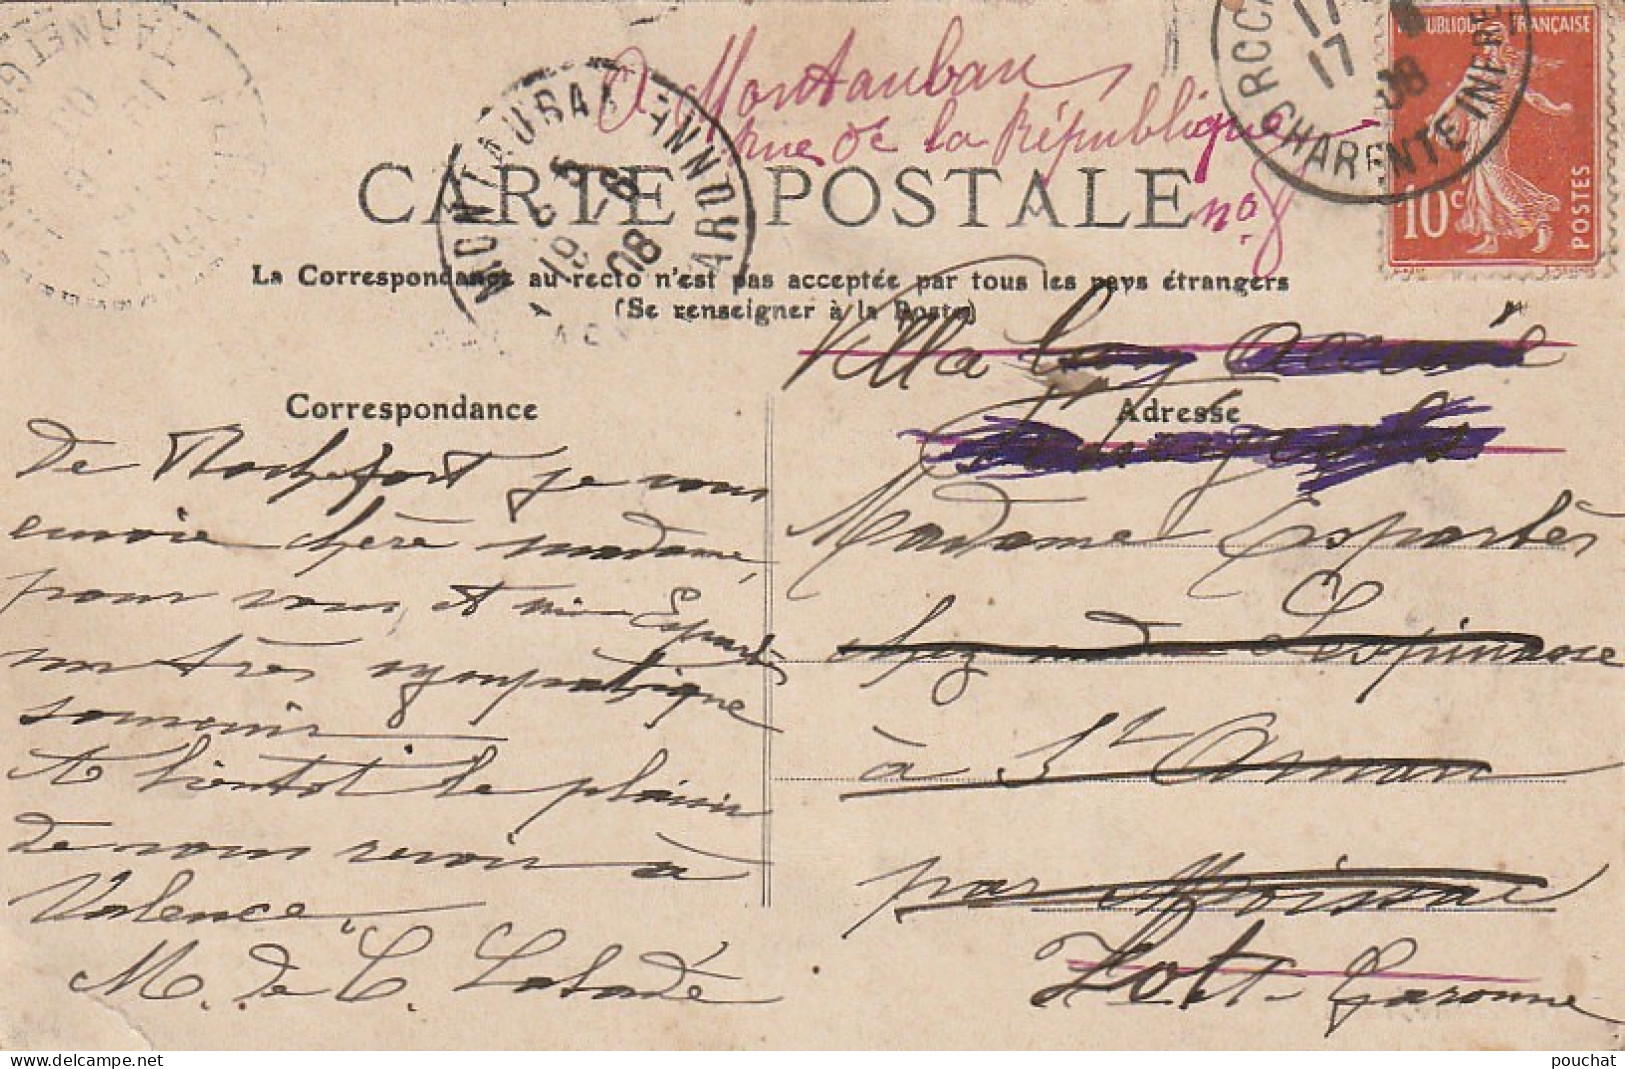 à Montauban
rue de la République
no 8
CARTE POSTALE
La Correspondance au recto n'est pas acceptée par tous les pays étrangers
(Se renseigner à la Poste)
MONTAUBAN TARN
18 08
CHARENTE INFRE
17 08
RÉPUBLIQUE FRANÇAISE
10c
POSTES
Correspondance
De Rochefort je vous
envoie chère madame,
pour vous et Mr Espartès
un très sympathique
souvenir
A bientôt le plaisir
de vous revoir à
Valence.
M. de C. Labadé
Adresse
Villa
Madame Espartès
chez mde Lespinasse
à St Aman
par Moissac
Lot et Garonne
pouchat